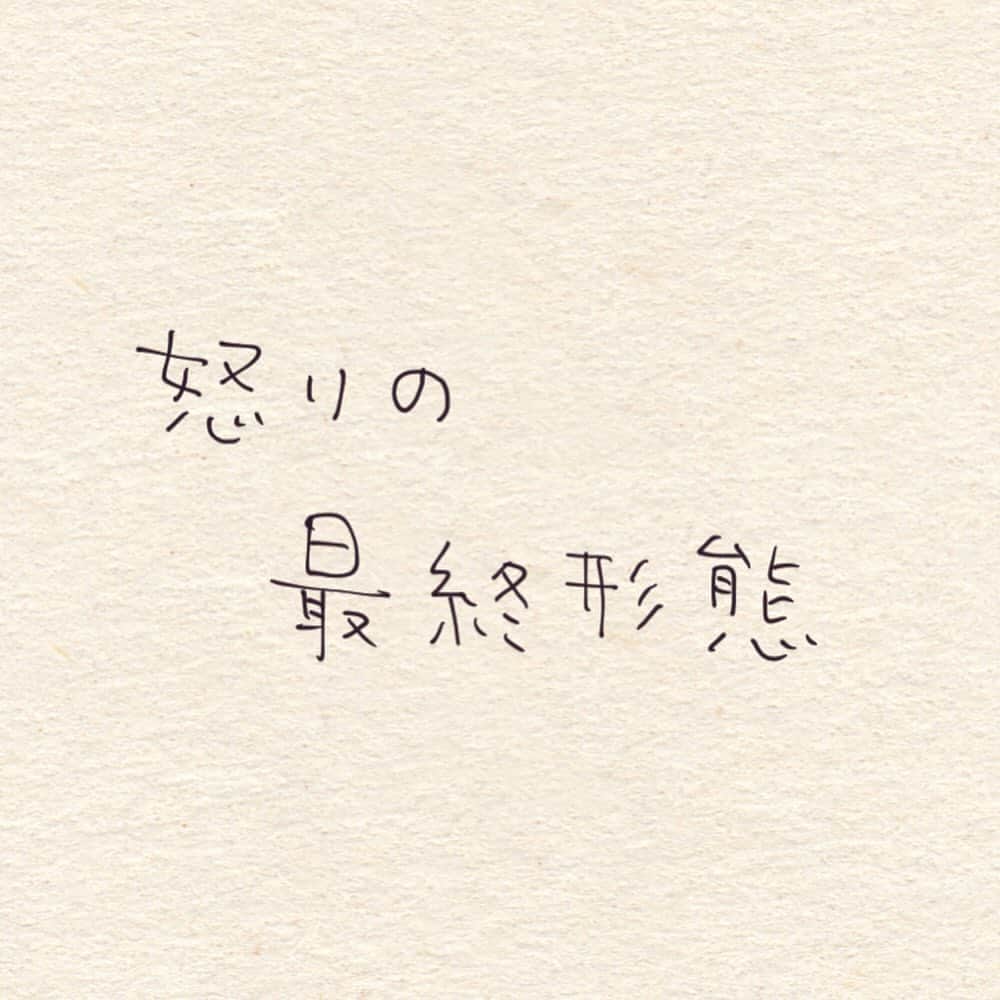 怒りの
最終形態